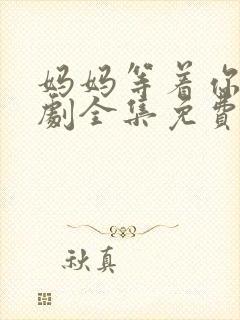 妈妈等着你
劇全集免費
秋真